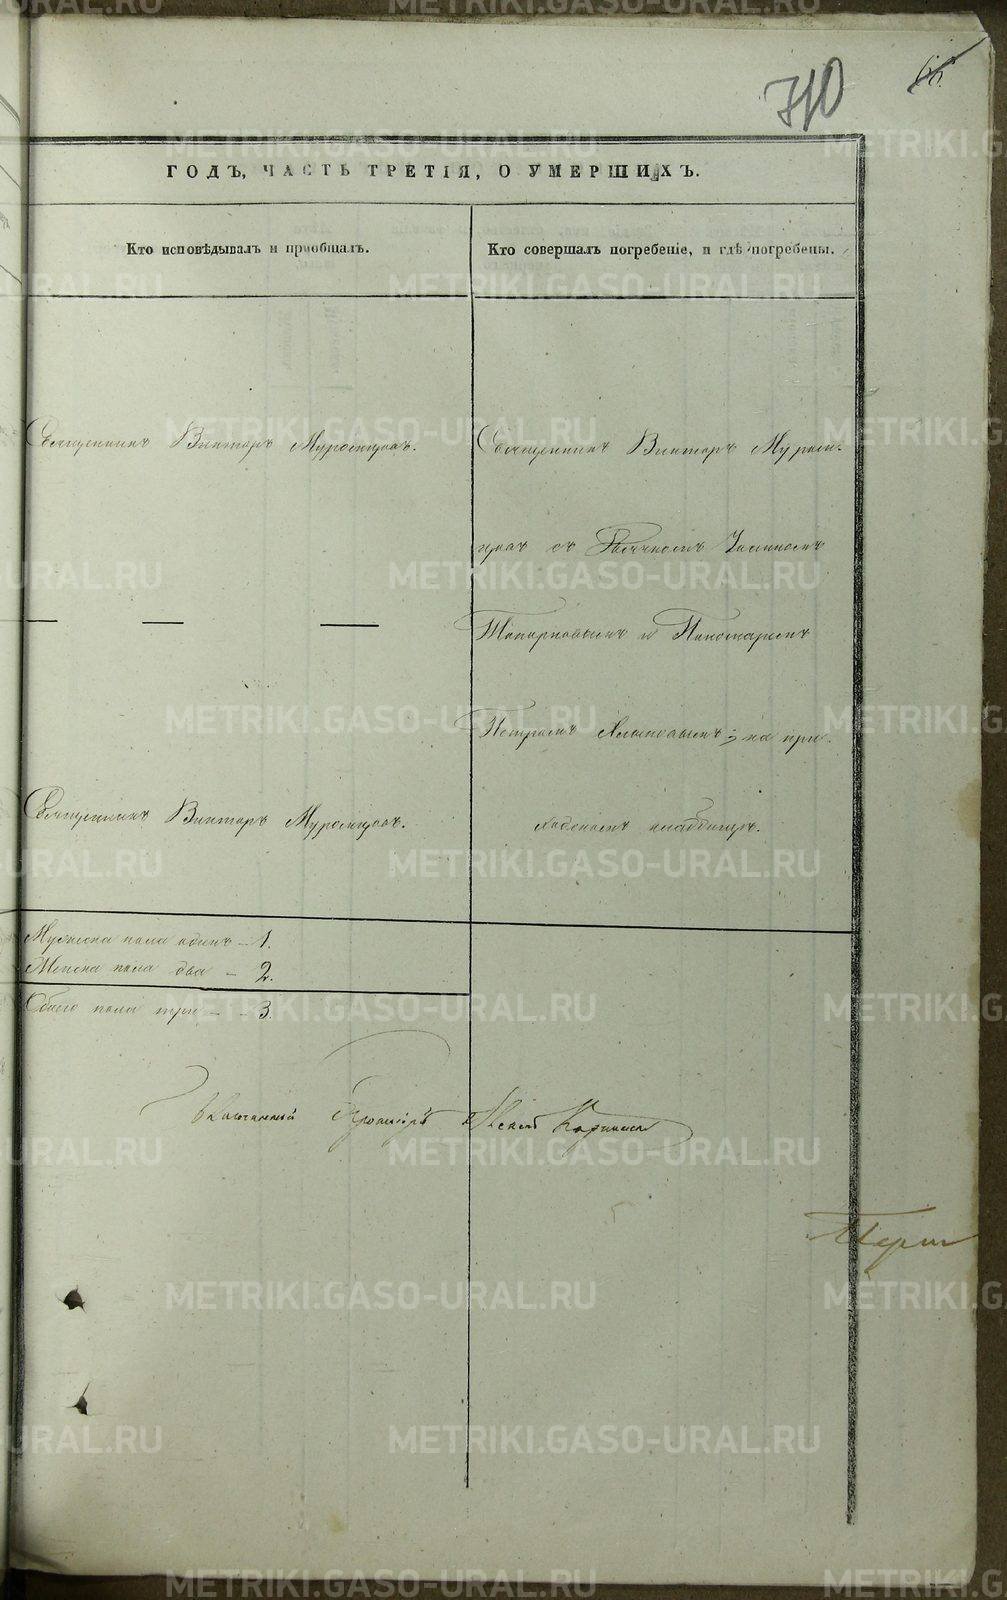 710
66.
ГОДЪ, ЧАСТЬ ТРЕТІЯ, О УМЕРШИХЪ.
Кто исповѣдывалъ и пріобщалъ.
Кто совершалъ погребеніе, и гдѣ погребены.
Священникъ Викторъ Муромцовъ.
Священникъ Викторъ Муром-
цовъ съ
и Пономаремъ
Петромъ на при-
ходскомъ кладбищѣ.
Священникъ Викторъ Муромцовъ.
Мужеска пола одинъ – 1.
Женска пола два – 2.
Обоего пола три – – 3.
METRIKI.GASO-URAL.RU